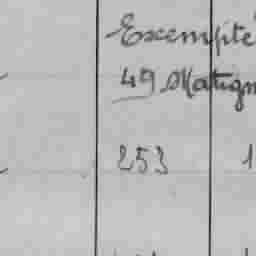 Exempté
49 Matign
253 1